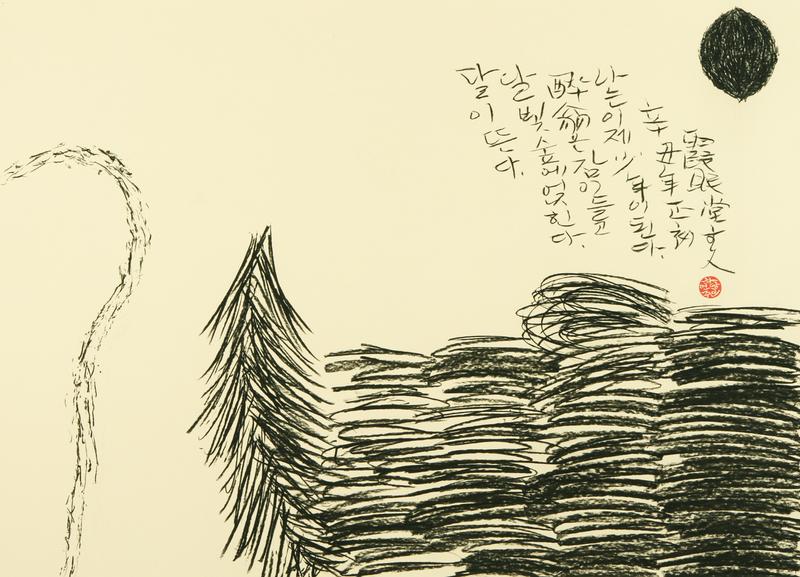 달이 뜬다.
달빛 숲에 얹힌다.
醉翁은 잠이 들고
나는 이제 少年이 된다.
辛丑年 正初
霞眠堂